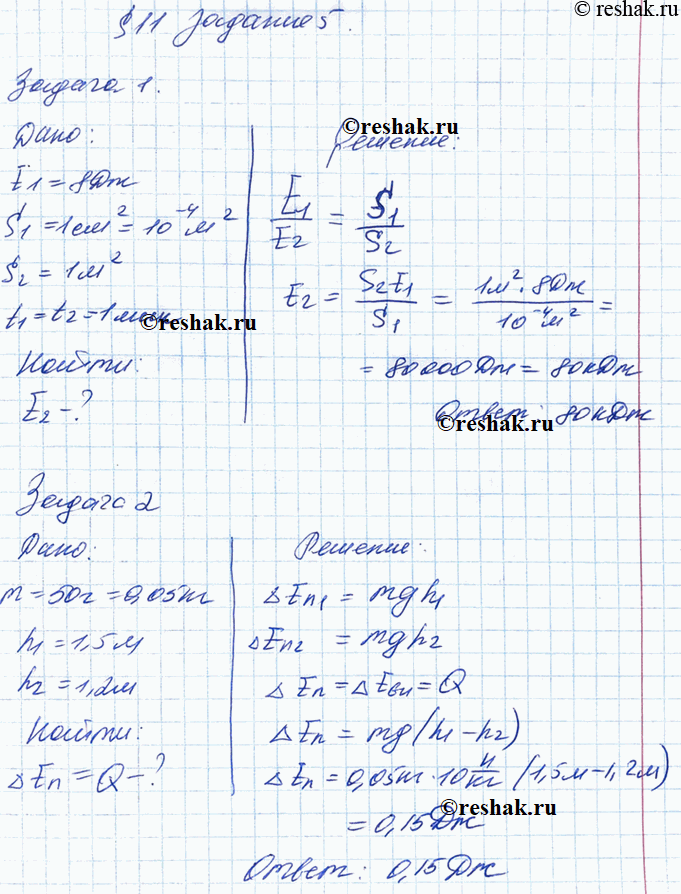 © reshak.ru
§11 Задание 5.
Задача 1.
Дано:
E1 = 8Дж
S1 = 1см² = 10⁻⁴м²
S2 = 1м²
t1 = t2 = 1мин
Найти:
E2 - ?
©reshak.ru
Решение:
E1/E2 = S1/S2
E2 = S2E1/S1 = 1м²·8Дж/10⁻⁴м² =
©reshak.ru
= 80000Дж = 80кДж
Ответ: 80кДж
©reshak.ru
Задача 2
Дано:
m = 50г = 0,05кг
h1 = 1,5м
h2 = 1,2м
Найти:
△Eп = Q - ?
Решение:
△Eп1 = mgh1
△Eп2 = mgh2
△Eп = △Eвн = Q
△Eп = mg(h1 - h2)
△Eп = 0,05кг·10 Н/кг (1,5м - 1,2м)
©reshak.ru
= 0,15Дж
Ответ: 0,15Дж